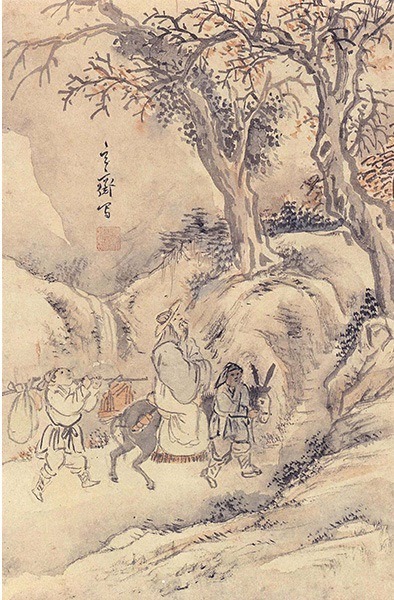 玄齋寫